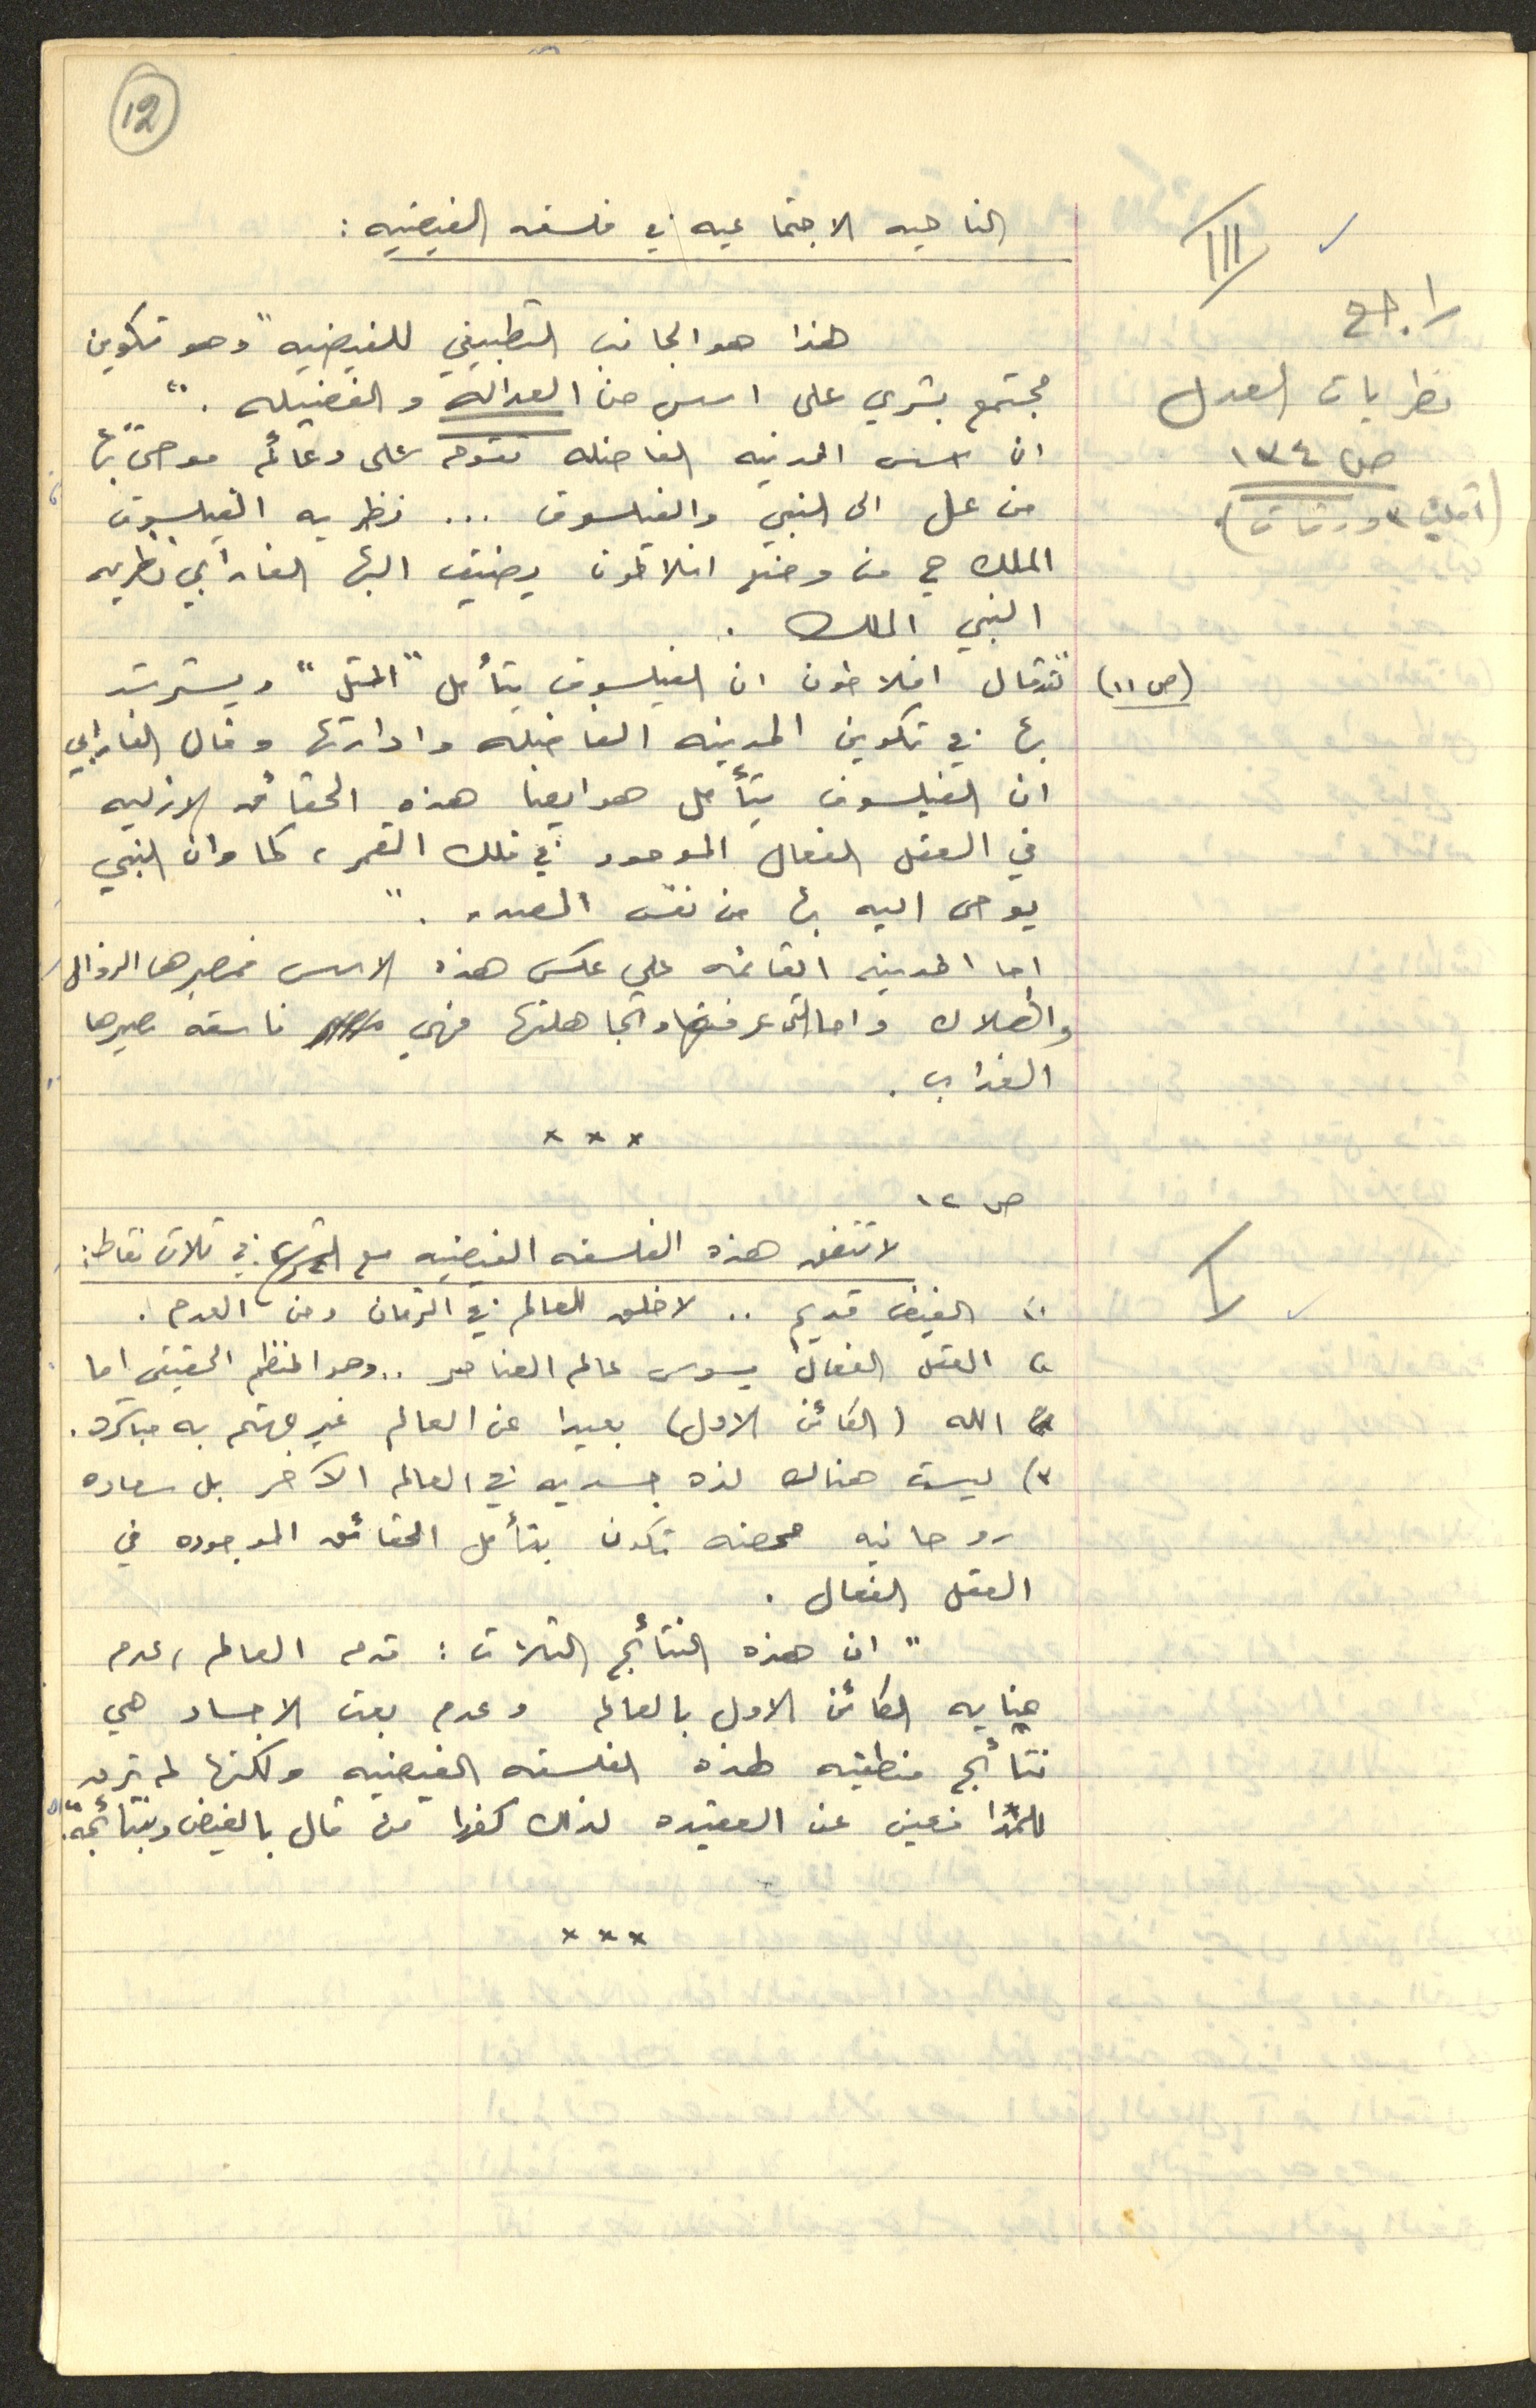 12
III
الناحيه الاجتماعيه في فلسفه الفيضيه :
راجع
نظريات العدل
ص ١٣٤
هذا هو الجانب التطبيقي للفيضيه "وهو تكوين
مجتمع بشري على اسس من العدالة و الفضيله . "
ان اسس المدنيه الفاضله تقوم على دعائم موحىً بها
من عل الى النبي والفيلسوف ... نظريه الفيلسوف
الملك هي من وضع افلاطون يضيف اليها الفارابي نظريه
النبي الملك .
(ص ١١)
"قد قال افلاطون ان الفيلسوف يتأمل "المثل" ويسترشد
بها في تكوين المدينه الفاضله وادارتها وقال الفارابي
ان الفيلسوف يتأمل هو ايضا هذه الحقائق الازليه
في العقل الفعال الموجود في فلك القمر ، كما وان النبي
يوحى اليه بها من نفس المصدر . "
اما المدينه القائمه على عكس هذه الاسس فمصيرها الزوال
والهلاك واما التي عرفتها وتجاهلتها فهي فاسقه مصيرها
العذاب .
* * *
ص ١٢
لا تتفق هذه الفلسفه الفيضيه مع في ثلاث نقاط :
١) الفيض قديم .. لا خلق للعالم في الزمان ومن العدم .
٢) العقل الفعال يسوس عالم العناصر .. وهو المنظم الحقيقي اما
الله (الكائن الاول) بعيدا عن العالم غير مهتم به مباشرة .
٣) ليست هناك لذه جسديه في العالم الآخر بل سعاده
روحانيه محضه تكون بتأمل الحقائق الموجوده في
العقل الفعال .
" ان هذه النتائج الثلاث : قدم العالم ، عدم
عنايه الكائن الاول بالعالم وعدم بعث الاجساد هي
نتائج منطقيه لهذه الفلسفه الفيضيه ولكنها لم ترق
للمدافعين عن العقيده لذلك كفروا من قال بالفيض وبنتائجه . "
* * *